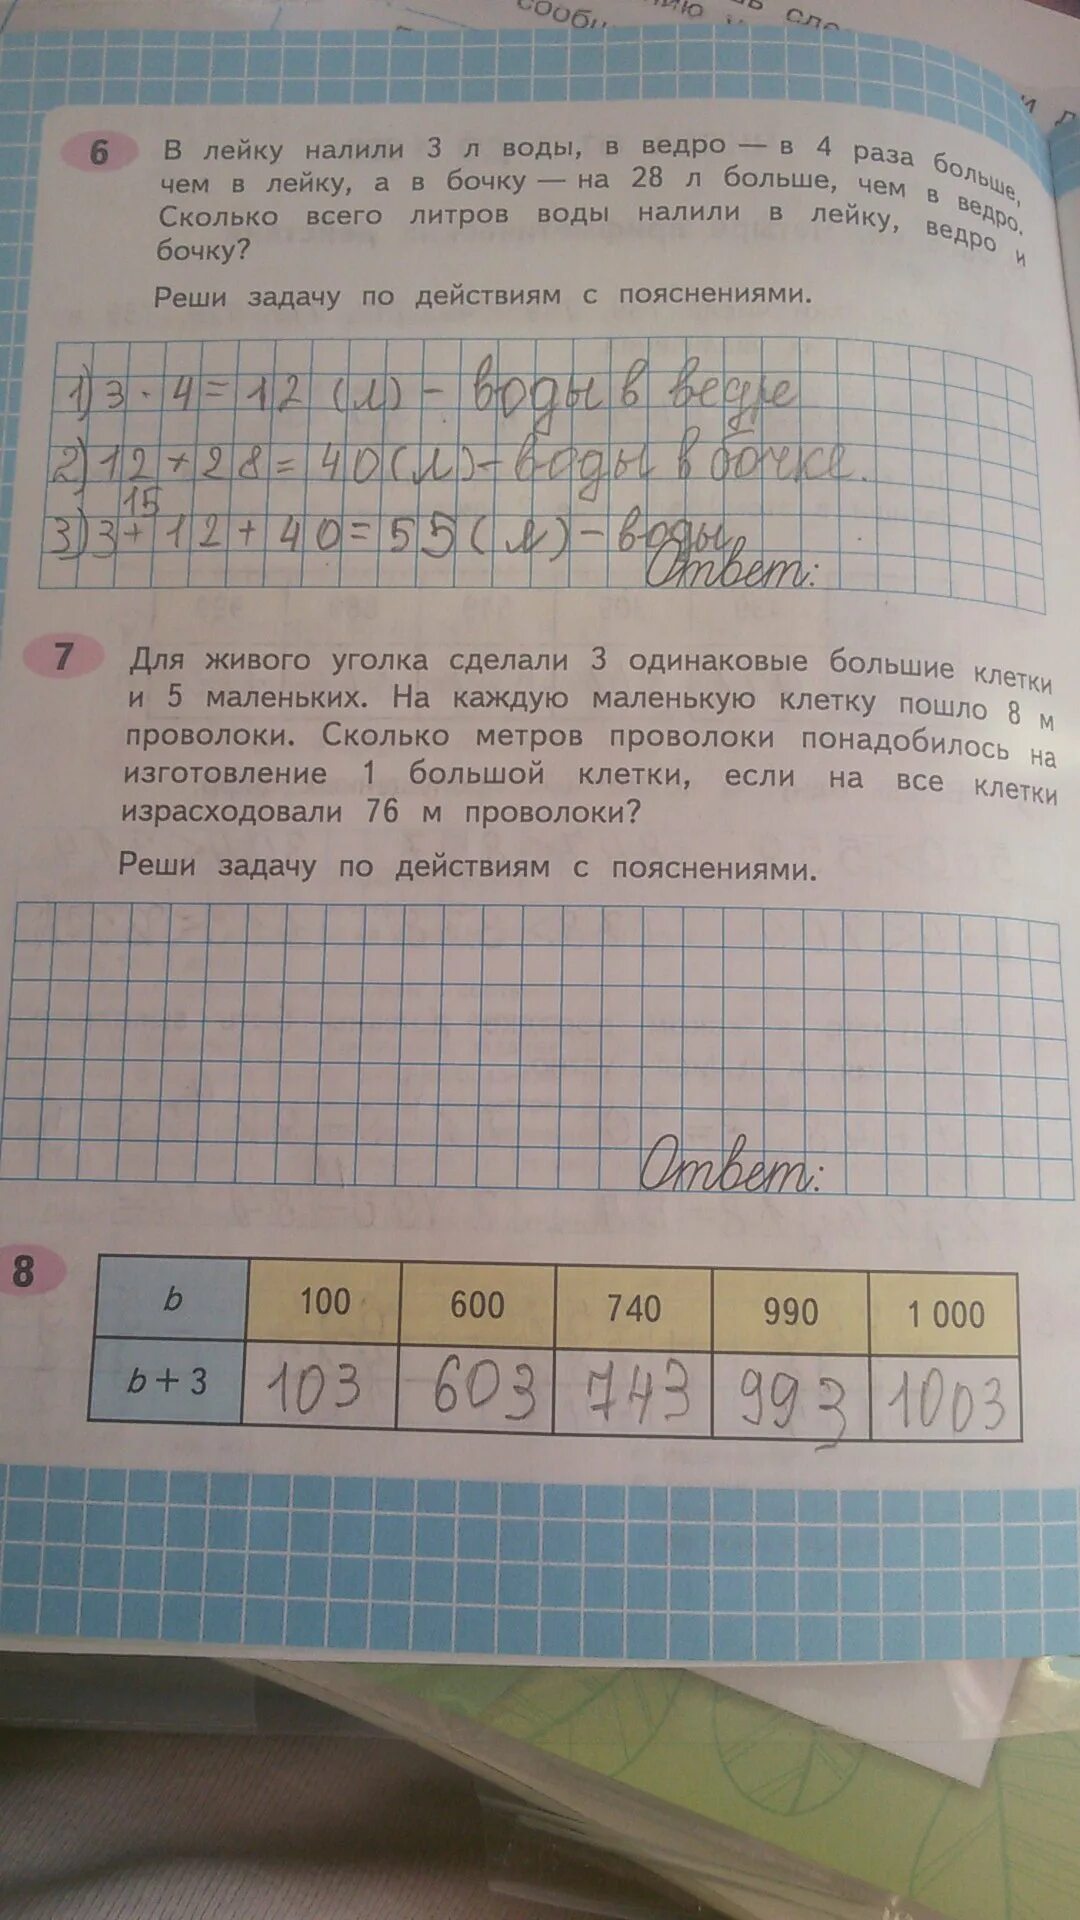 6
В лейку налили 3 л воды, в ведро — в 4 раза больше,
чем в лейку, а в бочку — на 28 л больше, чем в ведро.
Сколько всего литров воды налили в лейку, ведро и
бочку?
Реши задачу по действиям с пояснениями.
1) 3 · 4 = 12 (л) - воды в ведре
2) 12 + 28 = 40 (л) - воды в бочке.
15
3) 3 + 12 + 40 = 55 (л) - воды
Ответ:
7
Для живого уголка сделали 3 одинаковые большие клетки
и 5 маленьких. На каждую маленькую клетку пошло 8 м
проволоки. Сколько метров проволоки понадобилось на
изготовление 1 большой клетки, если на все клетки
израсходовали 76 м проволоки?
Реши задачу по действиям с пояснениями.
Ответ:
8
b 100 600 740 990 1 000
b + 3 103 603 743 993 1003